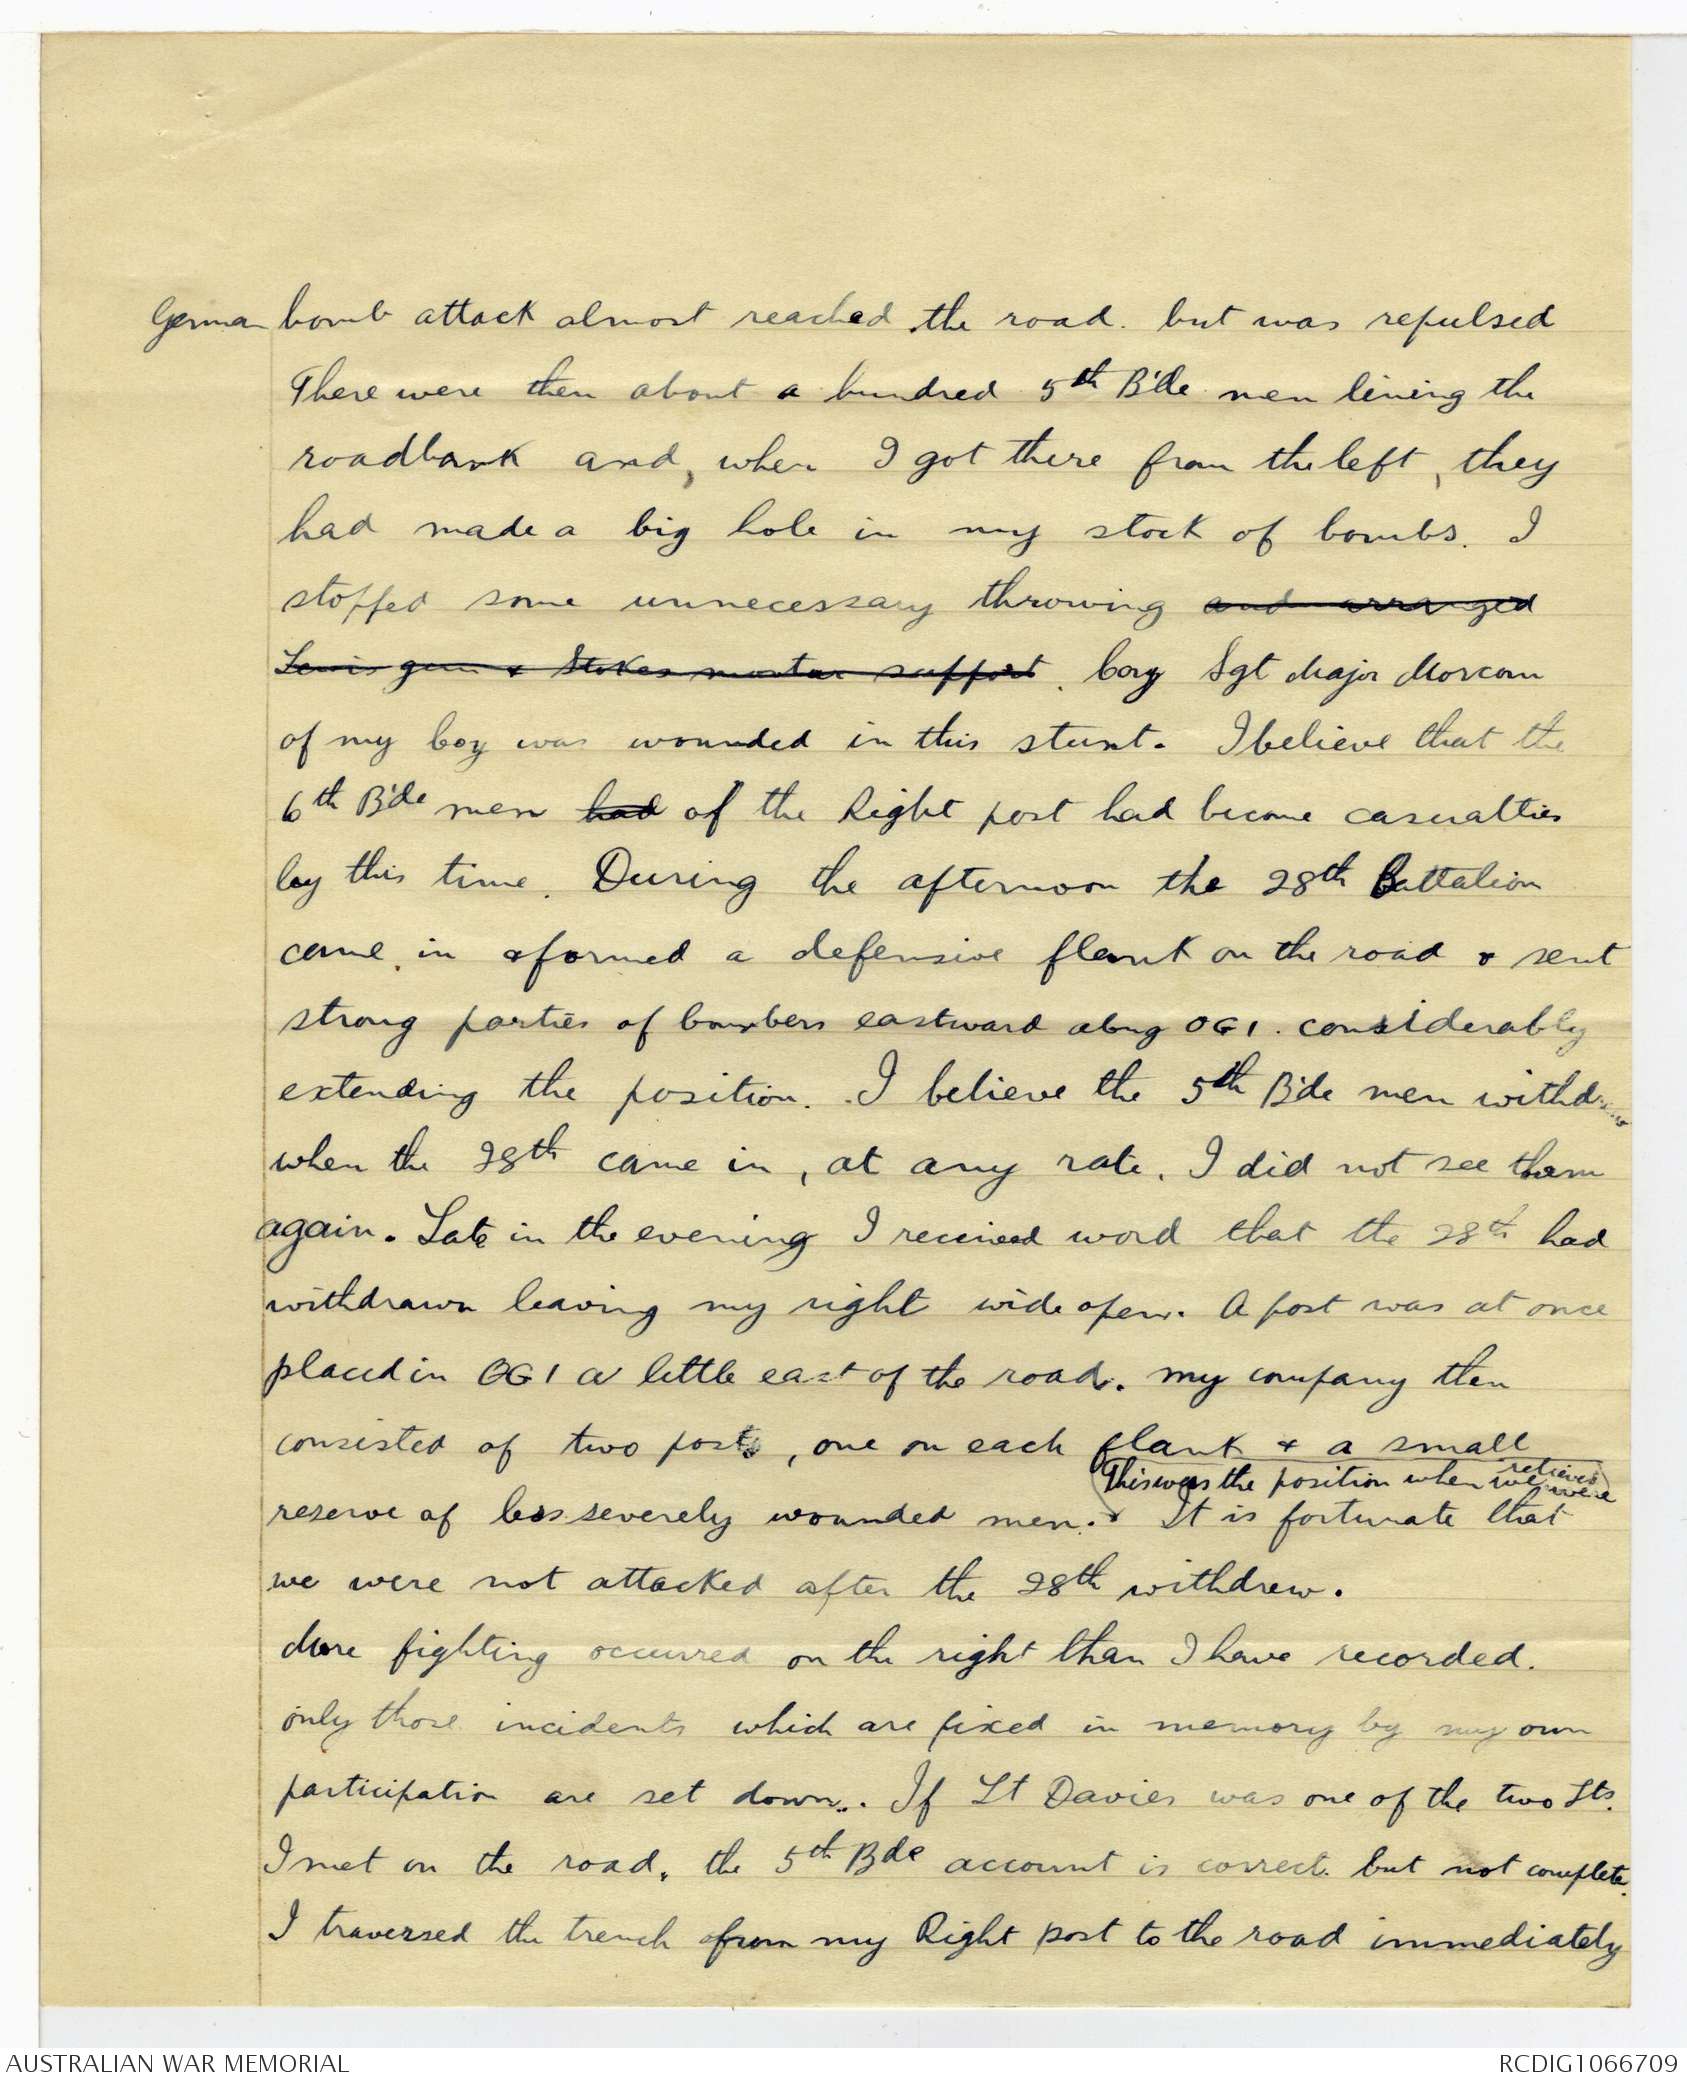 German bomb attack almost reached the road. but was repulsed
There were then about a hundred 5th B'de men lining the
roadbank and, when I got there from the left, they
had made a big hole in my stock of bombs. I
stopped some unnecessary throwing and arranged
Lewis gun & Stokes mortar support. Coy Sgt Major Morcom
of my Coy was wounded in this stunt. I believe that the
6th B'de men had of the Right post had become casualties
by this time. During the afternoon the 28th Battalion
came in & formed a defensive flank on the road & sent
strong parties of bombers eastward along OG1. considerably
extending the position. I believe the 5th B'de men withdrew
when the 28th came in, at any rate, I did not see them
again. Late in the evening I received word that the 28th had
withdrawn leaving my right wide open. A post was at once
placed in OG1 a little east of the road. My company then
consisted of two posts, one on each flank & a small
This was the position when we were relieved
reserve of less severely wounded men. It is fortunate that
we were not attacked after the 28th withdrew.
More fighting occurred on the right than I have recorded.
only those incidents which are fixed in memory by my own
participation are set down. If Lt Davies was one of the two Lts.
I met on the road, the 5th Bde account is correct but not complete.
I traversed the trench from my Right post to the road immediately
AUSTRALIAN WAR MEMORIAL
RCDIG1066709